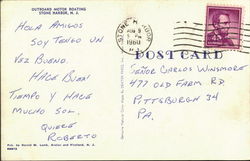 OUTBOARD MOTOR BOATING
STONE HARBOR, N. J.
STONE H
AUG 9
1960
N.J.
HOLA AMIGOS
SOY TENGO UN
VEZ BUENO.
HACE BUEN
TIEMPO Y HACE
MUCHO SOL.
QUIERE
ROBERTO
POST CARD
SEÑOR CARLOS WINSMORE
477 OLD FARM RD
PITTSBURGH 34
PA.
Pub. by David W. Lamb, Avalon and Vineland, N. J.